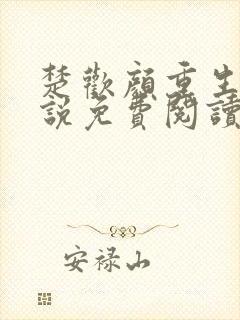 楚歡顏重生
說免費閱讀
安禄山